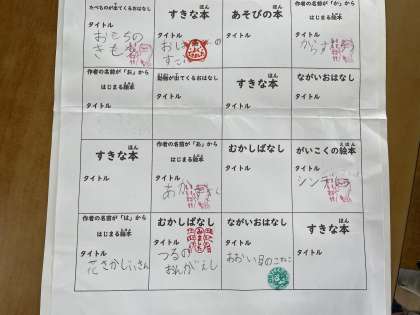 たべものが出てくるおはなし
タイトル
おもちの
きもち
すきな本
ほん
タイトル
あそびの本
ほん
タイトル
作者の名前が「か」から
はじまる絵本
タイトル
からす
作者の名前が「お」から
はじまる絵本
タイトル
動物が出てくるおはなし
タイトル
すきな本
ほん
タイトル
ながいおはなし
タイトル
すきな本
ほん
タイトル
作者の名前が「あ」から
はじまる絵本
タイトル
あか
むかしばなし
タイトル
がいこくの絵本
えほん
タイトル
シンデレラ
作者の名前が「は」から
はじまる絵本
タイトル
花さかじいさん
むかしばなし
タイトル
つるの
おんがえし
ながいおはなし
タイトル
あおい目のこねこ
すきな本
ほん
タイトル